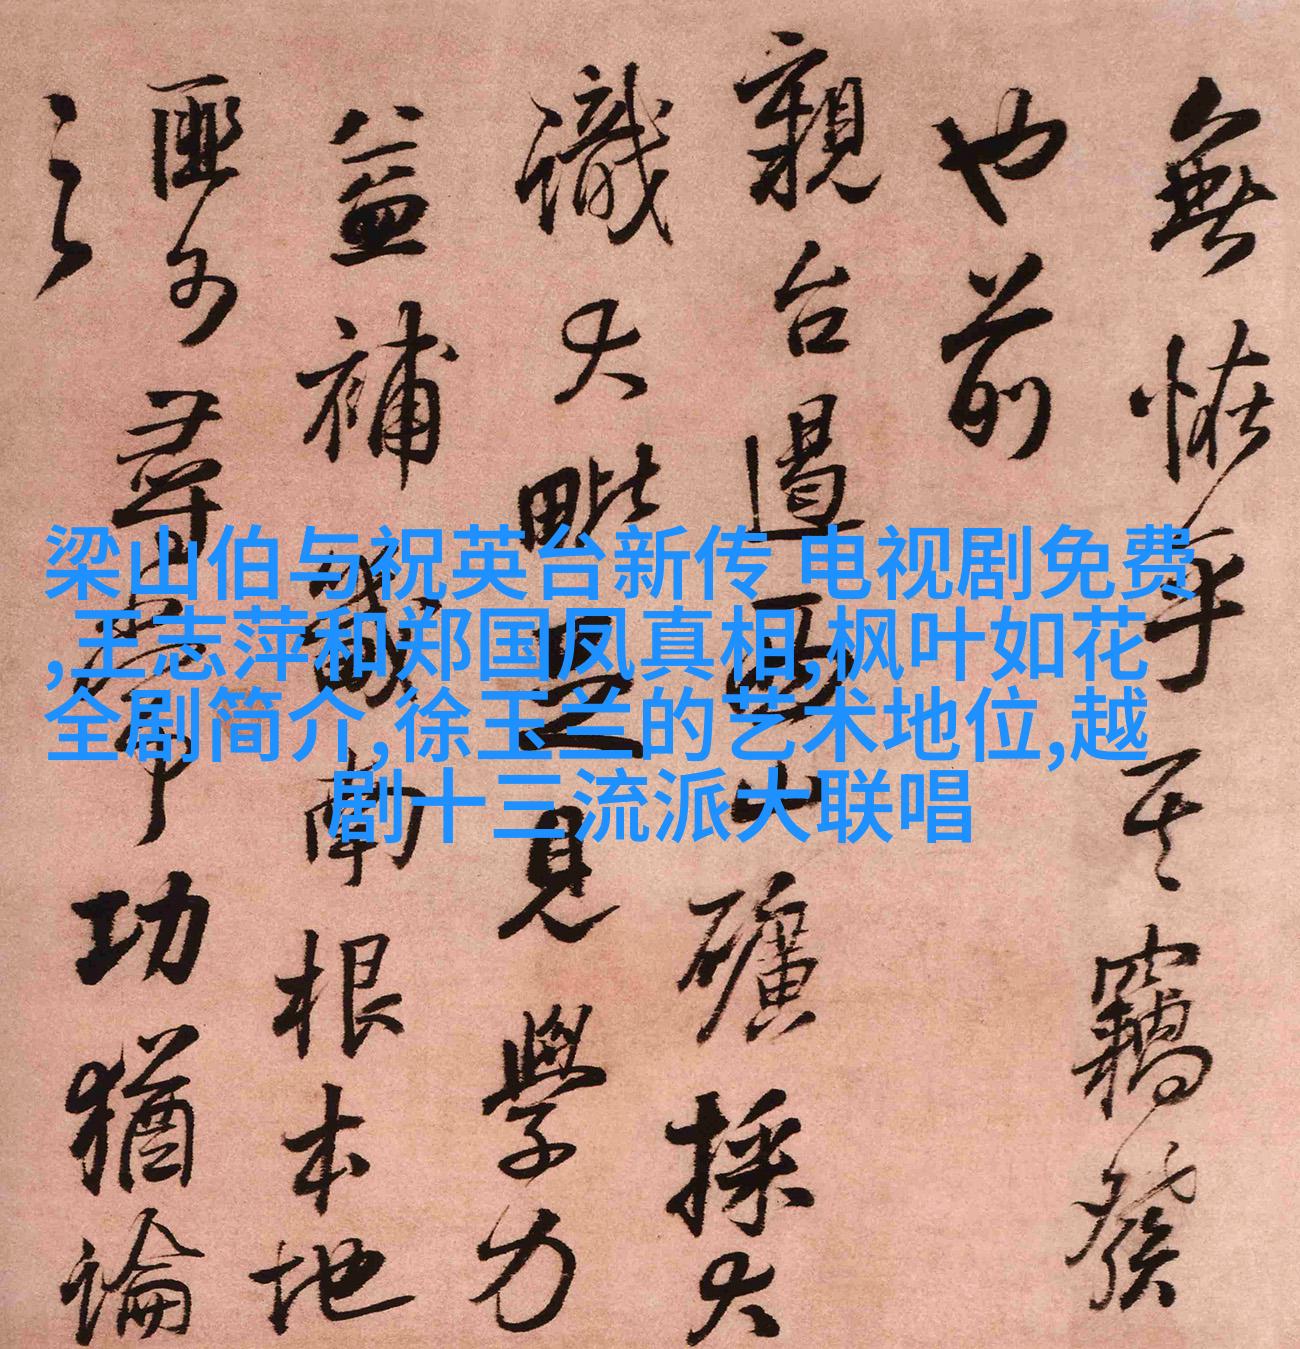 梁山伯与祝英台新传 电视剧免费
,王志萍和郑国凤真相,枫叶如花
全剧简介,徐玉兰的艺术地位,越
剧十三流派大联唱
無恠乎其竊發
也前
親台西山礦採大
識大毗見學力
益補南根本地
匪尋常功猶論
之